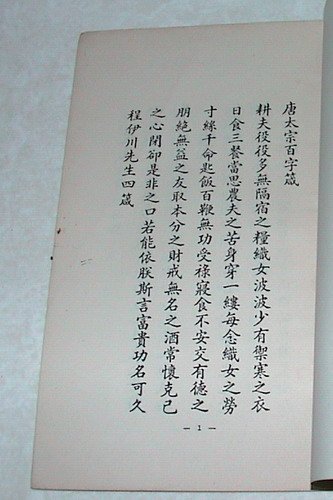 唐太宗百字箴
耕夫役役多無隔宿之糧織女波波少有禦寒之衣
日食三餐當思農夫之苦身穿一縷每念織女之勞
寸絲千命匙飯百鞭無功受祿寢食不安交有德之
朋絕無益之友取本分之財戒無名之酒常懷克己
之心閉卻是非之口若能依朕斯言富貴功名可久
程伊川先生四箴
— 1 —